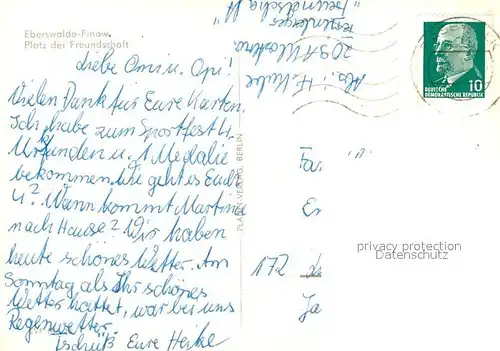 Eberswalde-Finow
Platz der Freundschaft
Liebe Omi u. Opi!
Vielen Dank für Eure Karten.
Ich habe zum Sportfest 4
Urkunden u. 1 Medalie
bekommen. Wie geht es Euch
4? Wann kommt Martina
nach Hause? Wir haben
heute schönes Wetter. Am
Sonntag als Ihr schönes
Wetter hattet, war bei uns
Regenwetter.
Tschüß Eure Heike
Abs.: H.
2091
10
DEUTSCHE
DEMOKRATISCHE REPUBLIK
VERLAG, BERLIN
Fa
172
privacy protection
Datenschutz